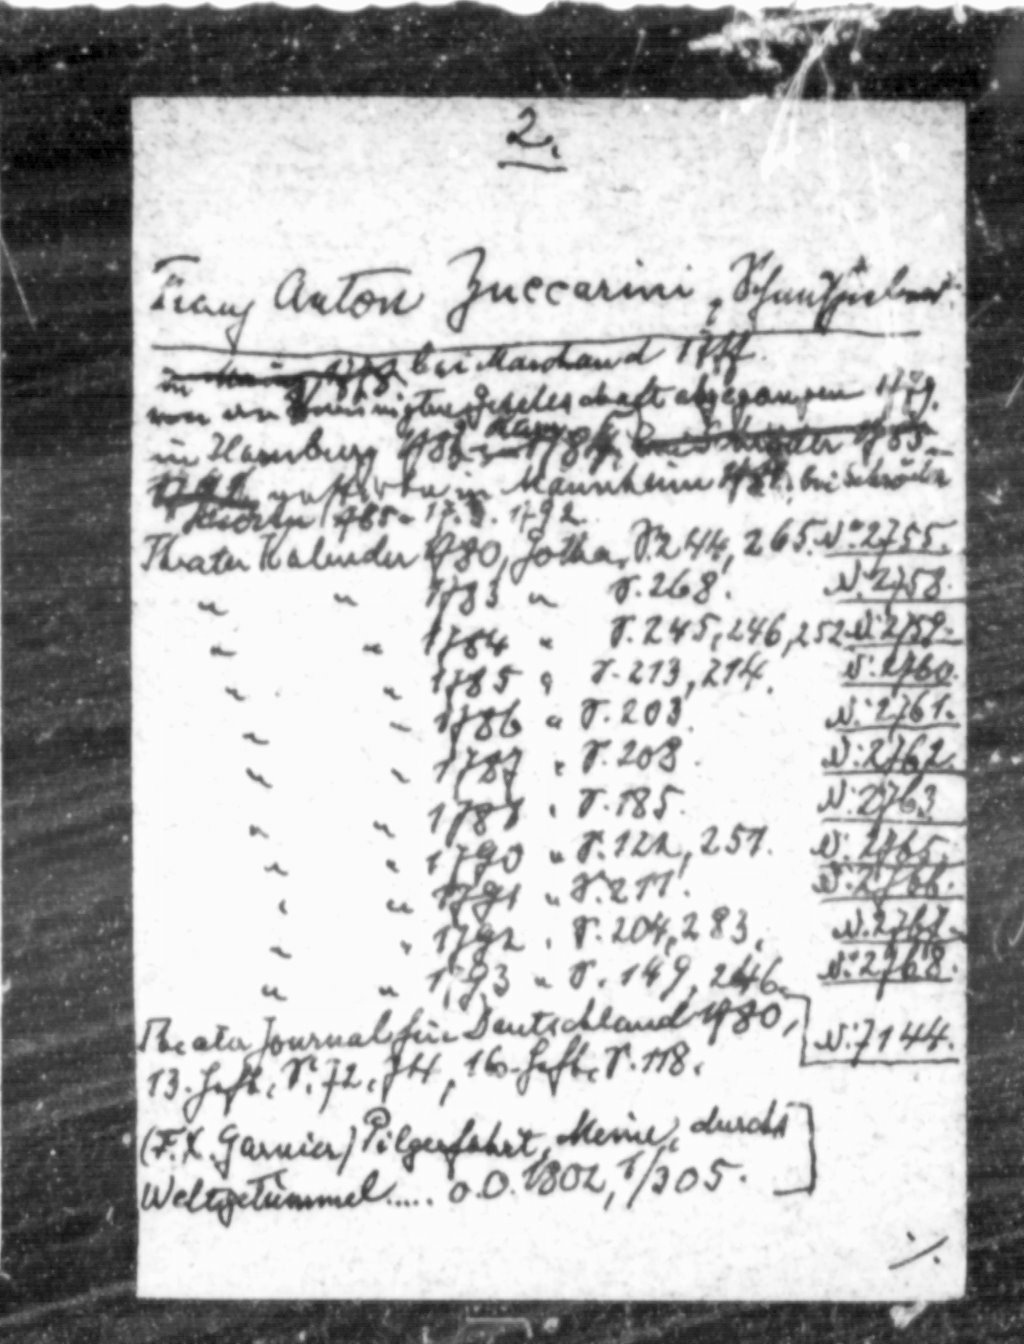 2.
Franz Anton Zuccarini, Schauspieler.
in 1778 bei Marchand 1777.
von der Gesellschaft abgegangen 1779.
in Hamburg
in Mannheim bei Schröder
1792
Theater Kalender 1780, Gotha, S. 244, 265. N: 2755.
" " 1783 " S. 268. N: 2758.
" " 1784 " S. 245, 246, 252 N: 2759.
" " 1785 " S. 213, 214. N: 2760.
" " 1786 " S. 203. N: 2761.
" " 1787 " S. 208. N: 2762.
" " 1788 " S. 185. N: 2763
" " 1790 " S. 122, 251. N: 2765.
" " 1791 " S. 211. N: 2766.
" " 1792 " S. 204, 283. N: 2767.
" " 1793 " S. 149, 246. N: 2768.
Theater Journal für Deutschland 1780,
13. Heft, S. 72, 74, 16. Heft, S. 118. N: 7144.
(F. X. Garnier) Pilgerfahrt, Meine, durchs
Weltgetümmel..... o. O. 1802, 1/305.
./.